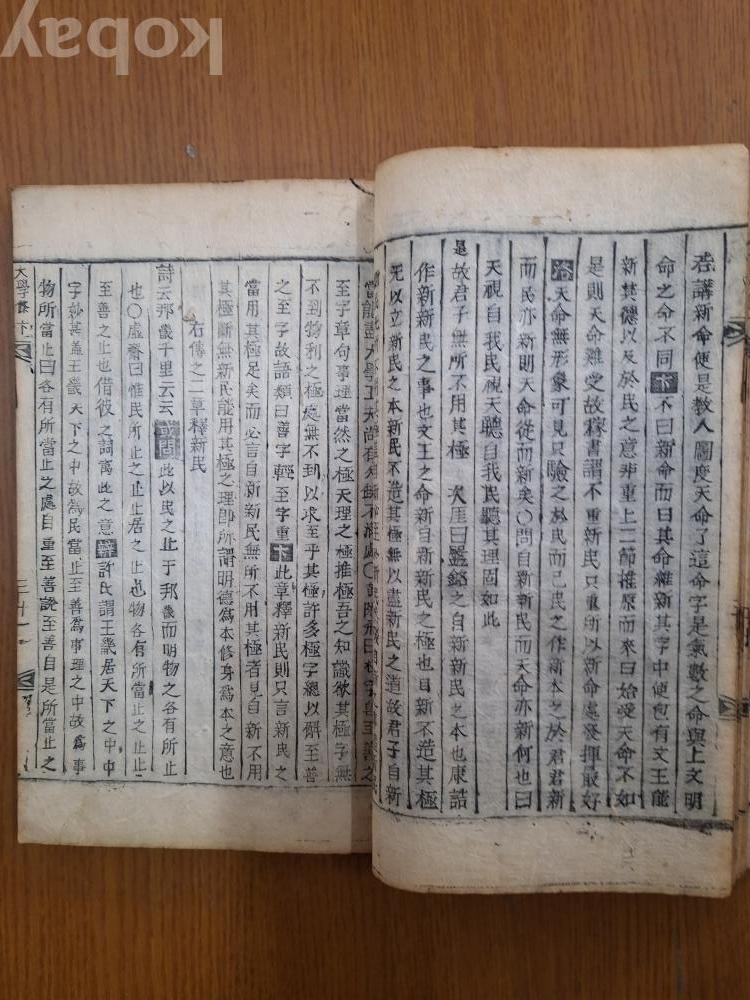 kobay
若講新命便是教人圖度天命了這命字是氣數之命與上文明
命之命不同卞不曰新命而曰其命維新其字中便包有文王能
新其德以及於民之意非重上二節推原而來曰始受天命不如
是則天命難受故稼書謂不重新民只重所以新命處發揮最好
洛天命無形象可見只驗之於民而已民之作新本之於君君新
而民亦新則天命從而新矣○問自新新民而天命亦新何也曰
天視自我民視天聽自我民聽其理固如此
是故君子無所不用其極 次厓曰盤銘之自新新民之本也康誥
作新新民之事也文王之命新自新新民之極也自新不造其極
无以立新民之本新民不造其極無以盡新民之道故君子自新
當能盡大學工夫
至字章句事理當然之極天理之極推極吾之知識欲其極字無
不到物利之極處無不到以求至乎其極許多極字總以硏至善
之至字故語類曰善字輕至字重卞此章釋新民則只言新民之
當用其極足矣而必言自新新民無所不用其極者見自新不用
其極斷無新民能用其極之理即所謂明德為本修身為本之意也
右傳之二章釋新民
詩云邦畿千里云云 此以民之止于邦畿而明物之各有所止
也○虛齋曰惟民所止之止居之止也物各有所當止之止止
至善之止也借彼之詞寓此之意辨許氏謂王畿居天下之中中
字妙甚盖王畿天下之中故為民當止至善為事理之中故為事
物所當止曰各有所當止之處自重至善說至善自是所當止之
大學
三十一